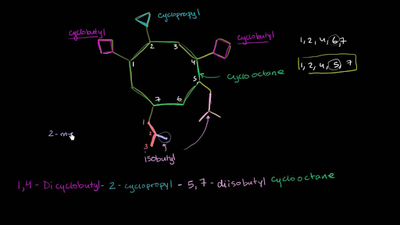 cyclopropyl
cyclobutyl
cyclobutyl
1, 2, 4, 6, 7
1, 2, 4, 5, 7
2
3
1
4
cyclooctane
5
7
6
1
2
3
isobutyl
1,4-Dicyclobutyl-2-cyclopropyl-5,7-diisobutyl cyclooctane